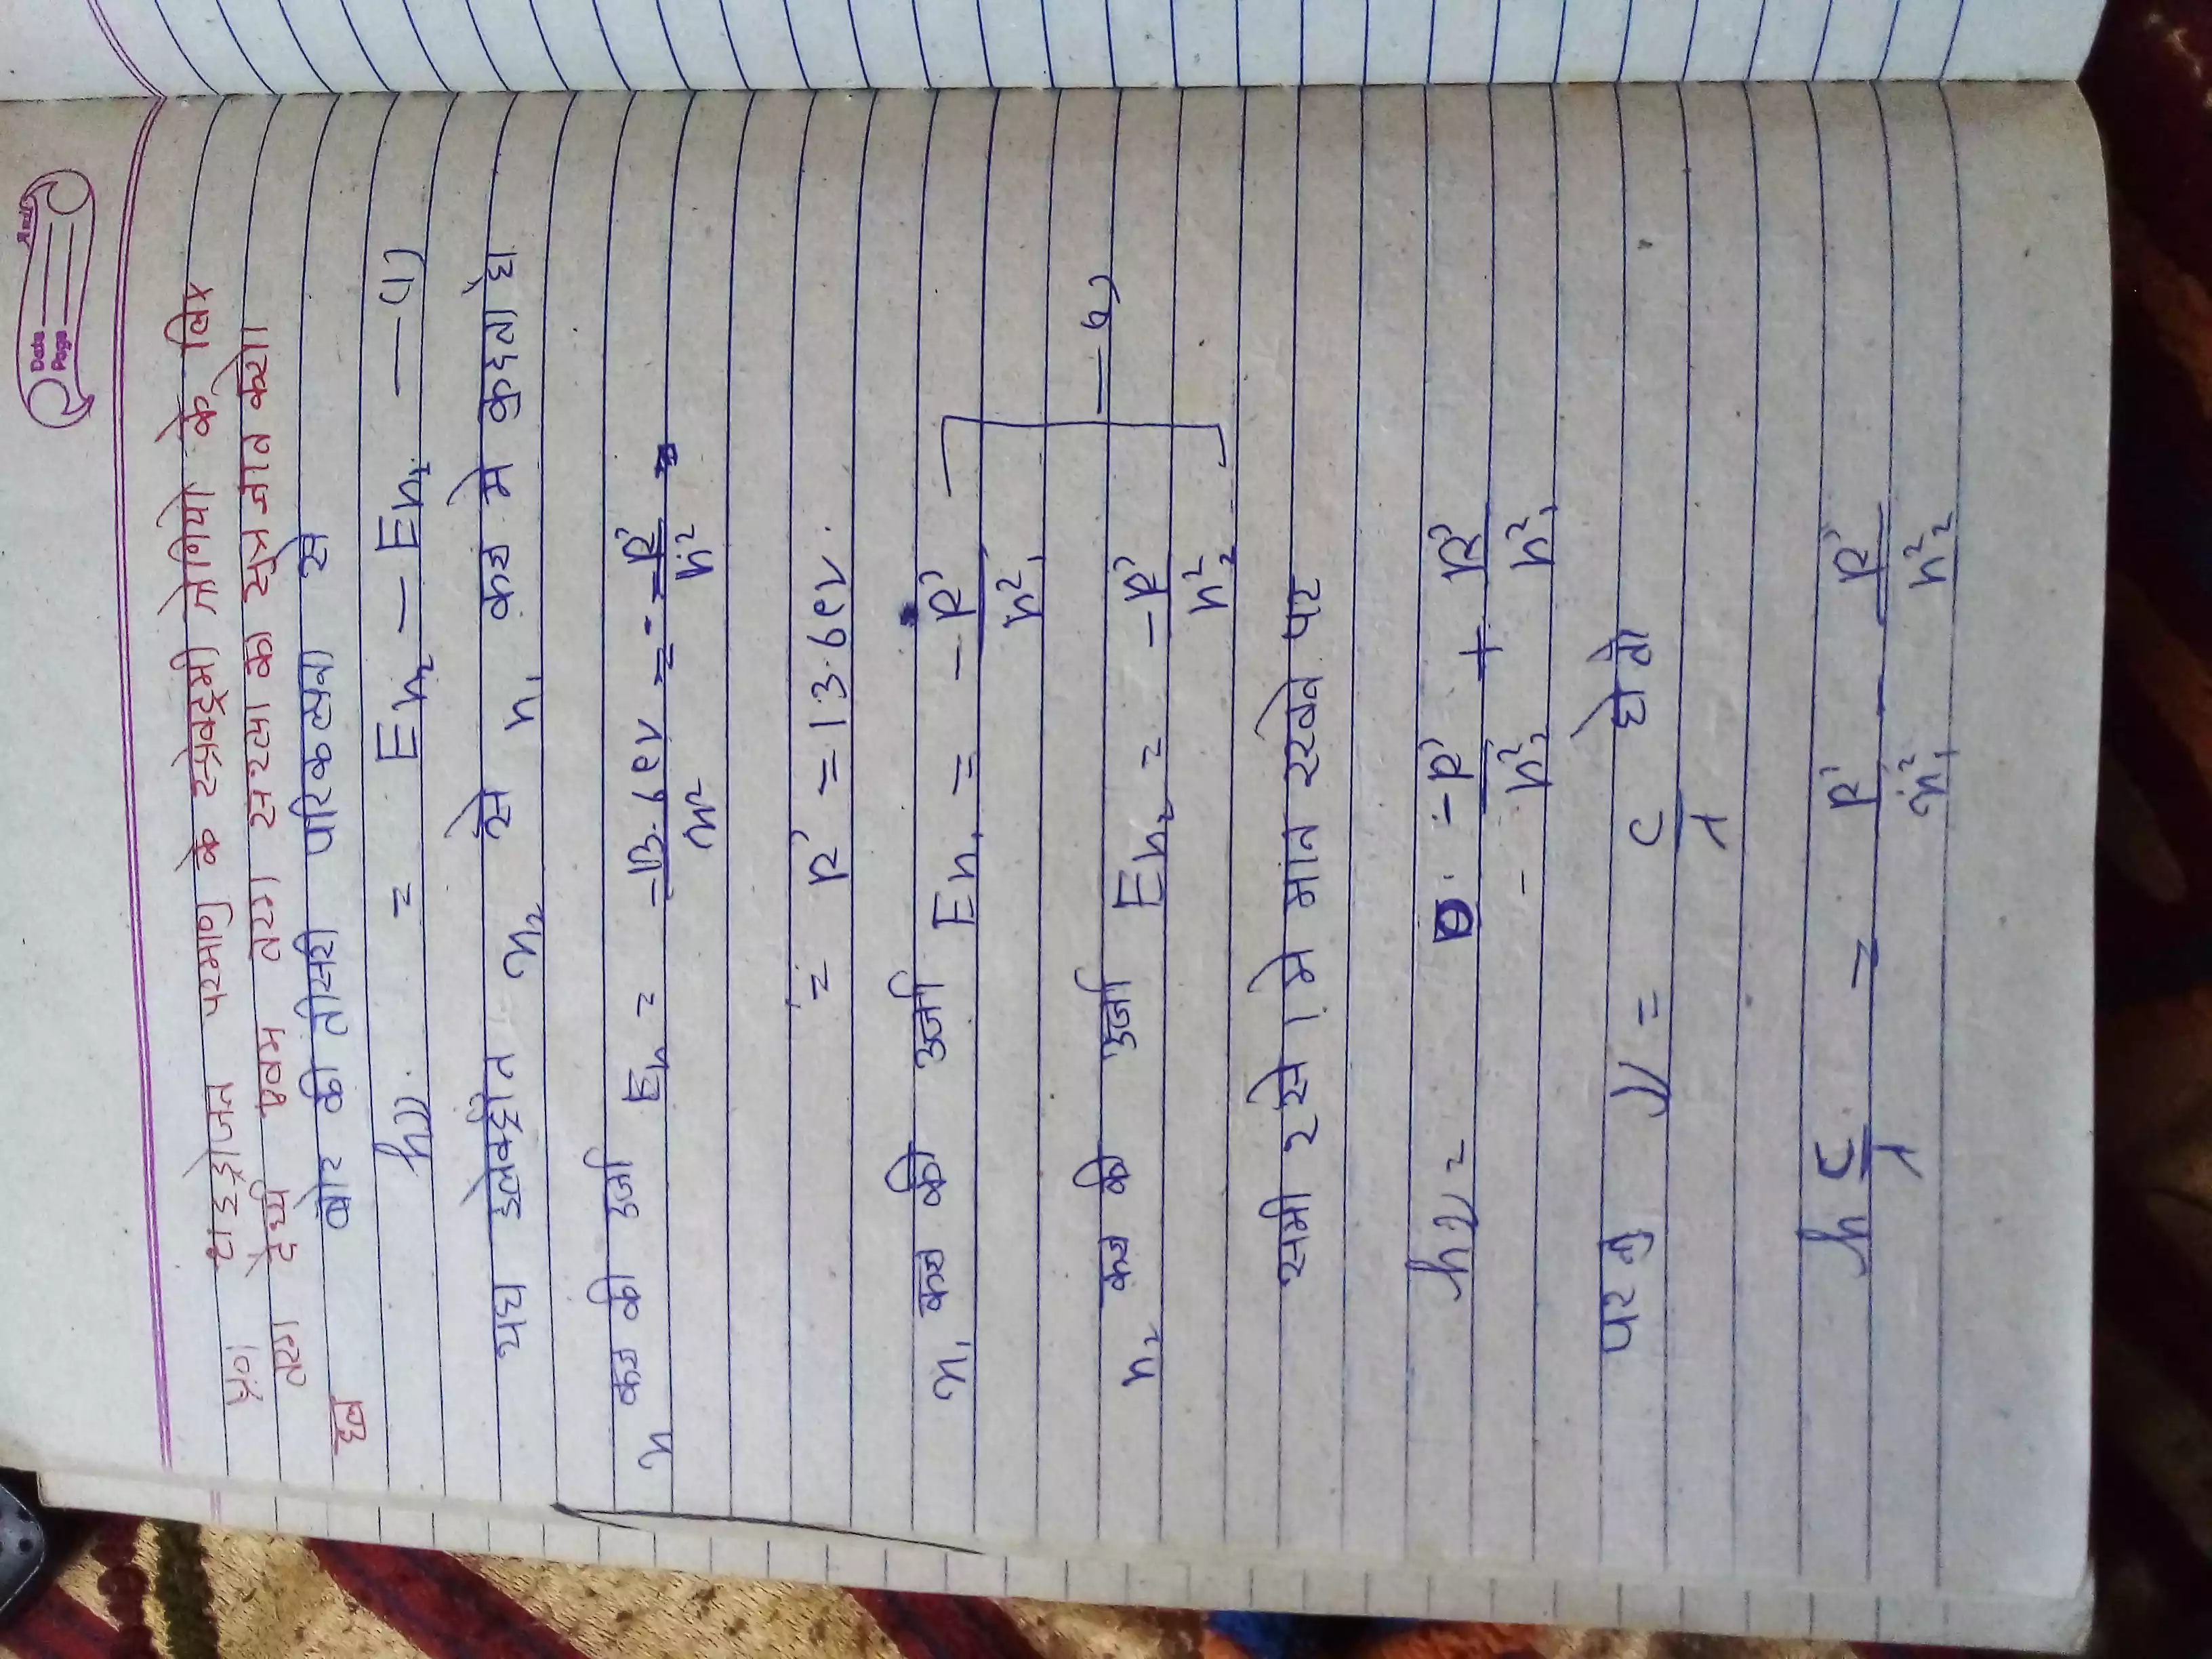 Date
Page
प्र.० हाइड्रोजन परमाणु के स्पेक्ट्रमी श्रेणियो के लिए
तरंग देर्घ्य एवम तरंग सख्या का सूत्र ज्ञात करो।
हल बोर की तीसरी परिकल्पना से
hν = En₂ – En₁ —(1)
यह इलेक्ट्रोन n₂ से n₁ कक्ष मे कुदता है
n कक्ष की उर्जा En = -13.6ev/n² = -R'/n²
= R' = 13.6ev.
n₁ कक्ष की उर्जा En₁ = -R'/n²₁
—(2)
n₂ कक्ष की उर्जा En₂ = -R'/n²₂
समी 2 से 1 मे मान रखने पर
hν = -R'/n²₂ + R'/n²₁
परन्तु ν = c/λ हो तो
h c/λ = R'/n²₁ - R'/n²₂